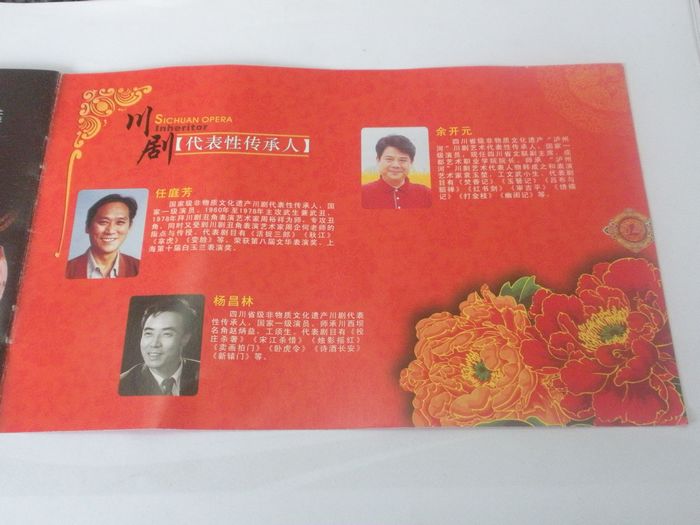 川剧
SICHUAN OPERA
Inheritor
【代表性传承人】
任庭芳
国家级非物质文化遗产川剧代表性传承人，国
家一级演员，1960年至1978年主攻武生兼武丑，
1978年拜川剧丑角表演艺术家周裕祥为师，专攻丑
角，同时又受到川剧丑角表演艺术家周企何老师的
指点与传授。代表剧目有《活捉三郎》《秋江》
《拿虎》《变脸》等。荣获第八届文华表演奖、上
海第十届白玉兰表演奖。
杨昌林
四川省级非物质文化遗产川剧代表
性传承人，国家一级演员，师承川西坝
名角赵炳益，工须生。代表剧目有《投
庄杀奢》《宋江杀惜》《烛影摇红》
《卖画拍门》《卧虎令》《诗酒长安》
《新辕门》等。
余开元
四川省级非物质文化遗产"泸州
河"川剧艺术代表性传承人，国家一
级演员，现任四川省文联副主席，成
都艺术职业学院院长。师承"泸州
河"川剧代表人物韩成之和表演
艺术家袁玉堃，工文武小生。代表剧
目有《焚香记》《玉簪记》《吕布与
貂蝉》《红书剑》《审吉平》《绣襦
记》《打金枝》《幽闺记》等。